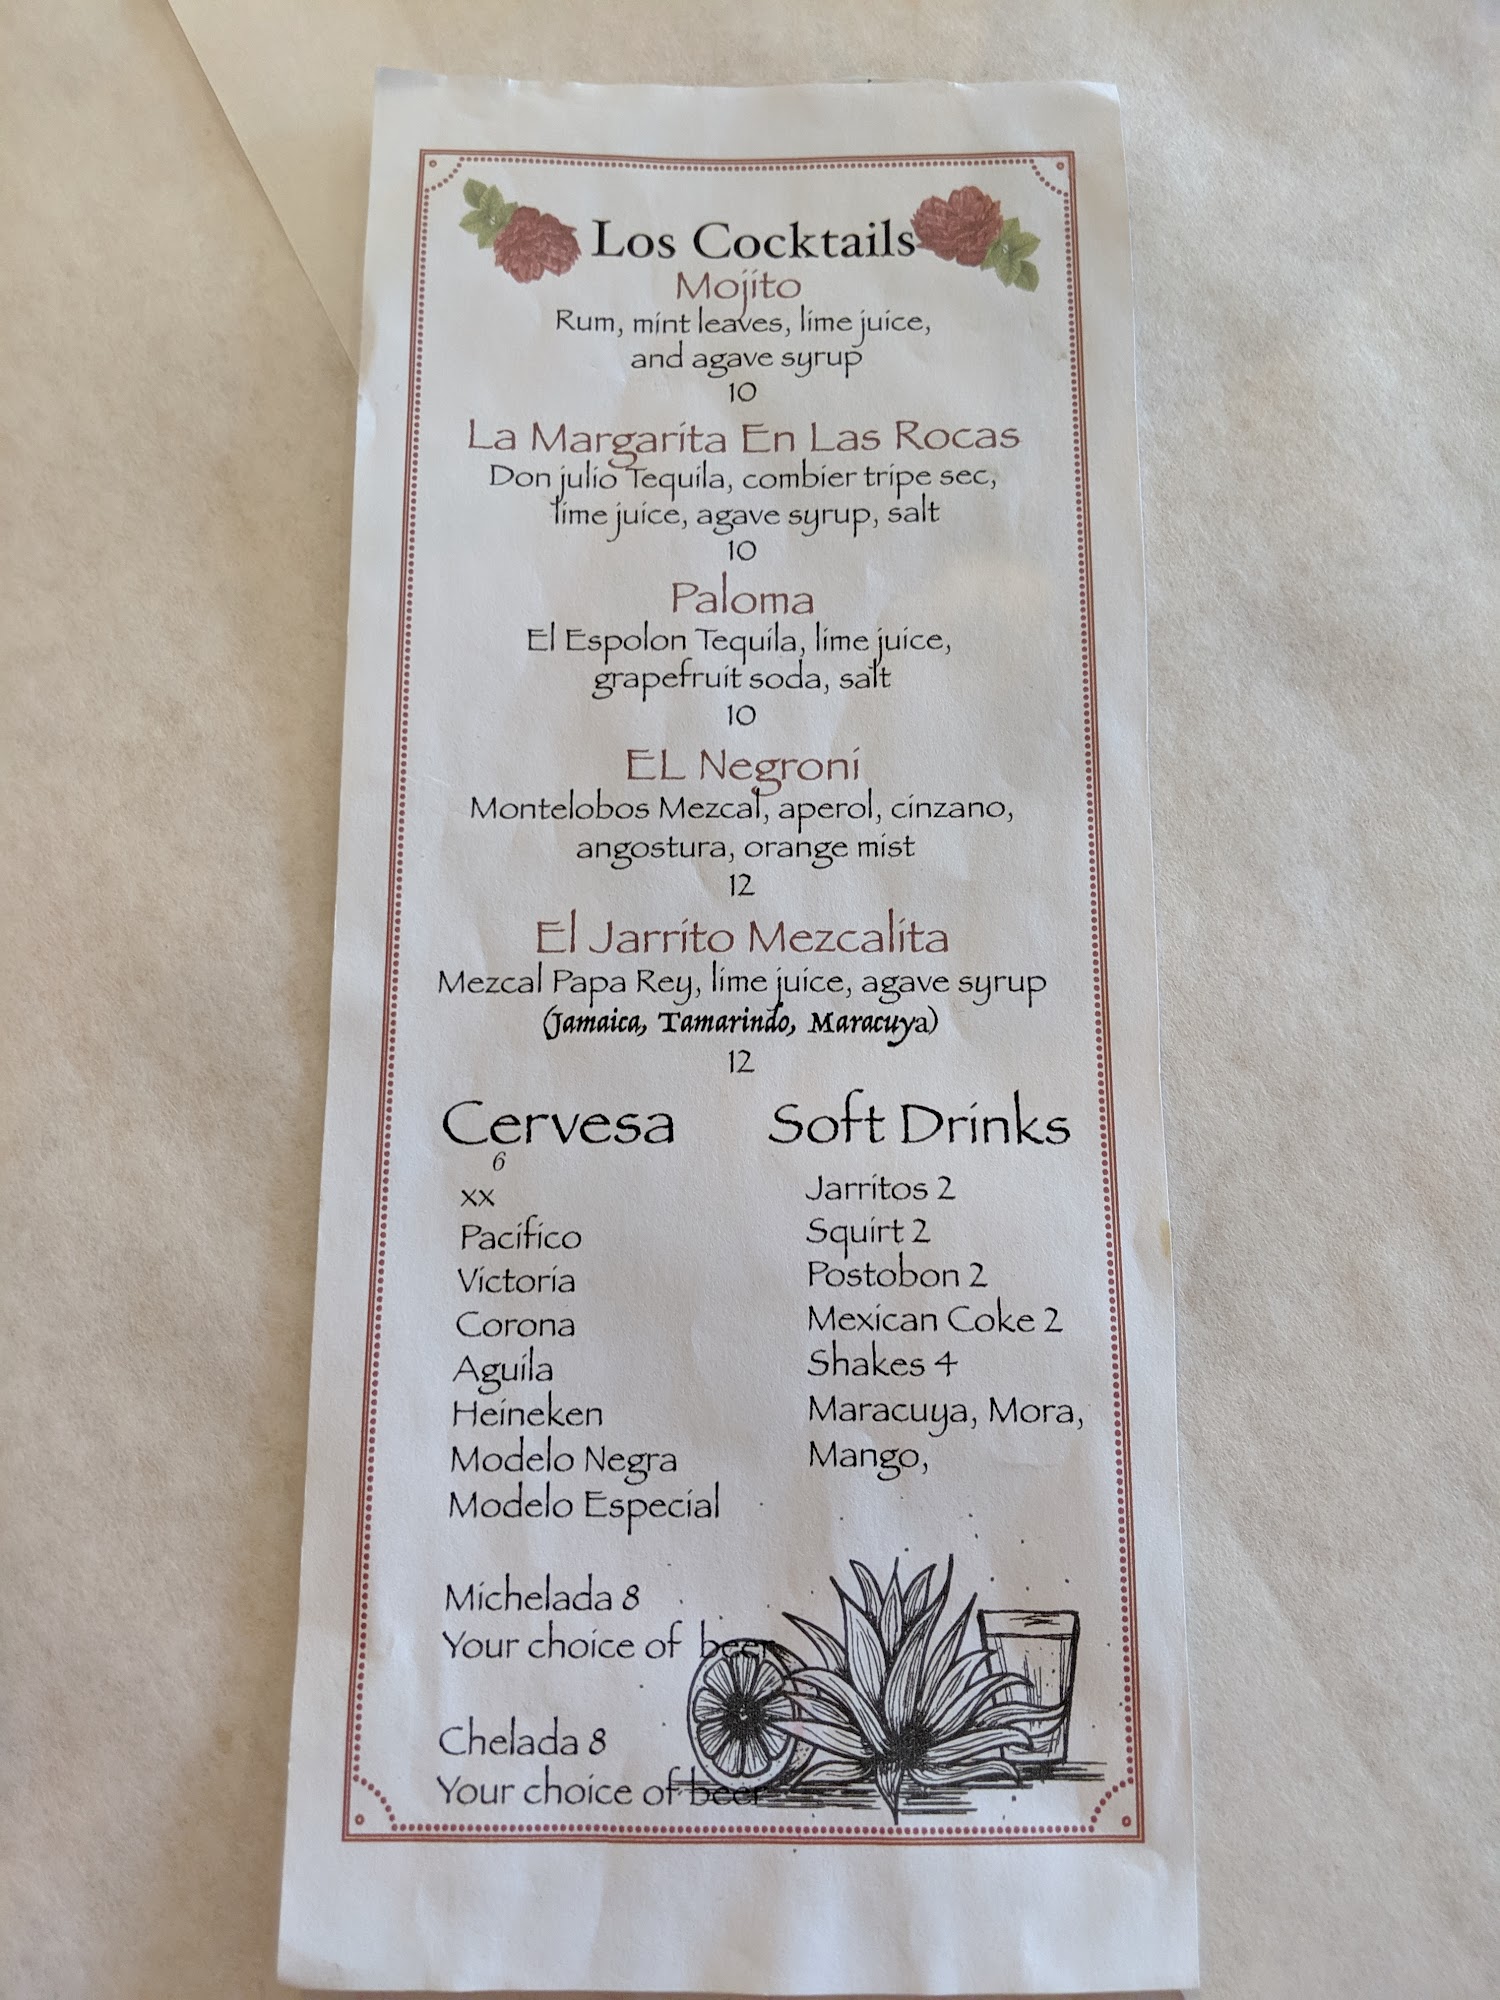 Los Cocktails
Mojito
Rum, mint leaves, lime juice,
and agave syrup
10
La Margarita En Las Rocas
Don julio Tequila, combier tripe sec,
lime juice, agave syrup, salt
10
Paloma
El Espolon Tequila, lime juice,
grapefruit soda, salt
10
EL Negroni
Montelobos Mezcal, aperol, cinzano,
angostura, orange mist
12
El Jarrito Mezcalita
Mezcal Papa Rey, lime juice, agave syrup
(Jamaica, Tamarindo, Maracuya)
12
Cervesa
6
xx
Pacifico
Victoria
Corona
Aguila
Heineken
Modelo Negra
Modelo Especial
Michelada 8
Your choice of beer
Chelada 8
Your choice of beer
Soft Drinks
Jarritos 2
Squirt 2
Postobon 2
Mexican Coke 2
Shakes 4
Maracuya, Mora,
Mango,